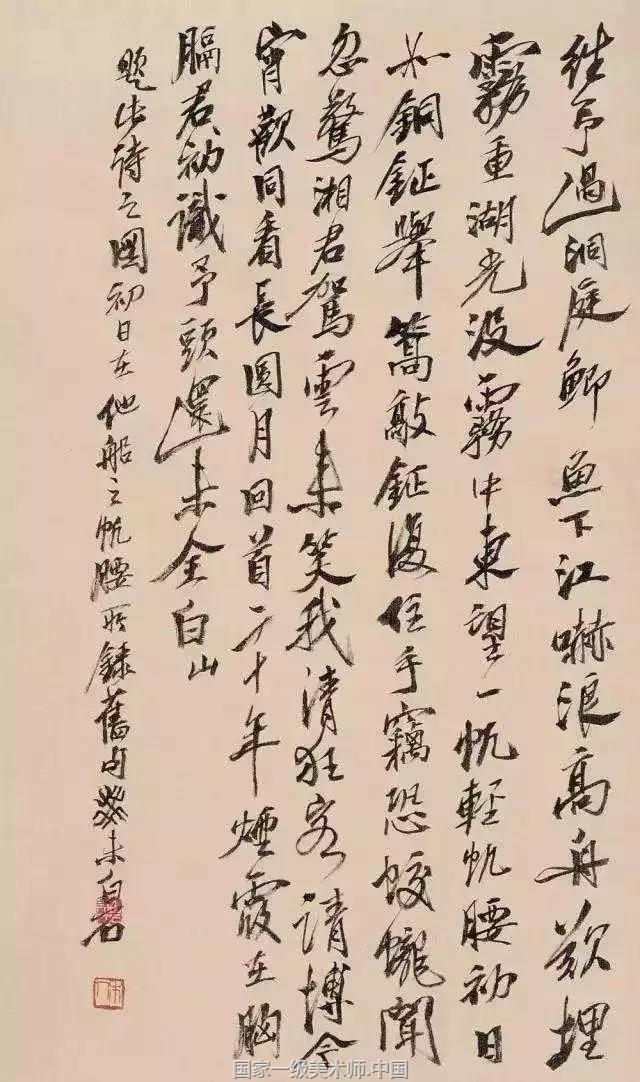 往予過洞庭鯽魚下江嚇浪高舟欲埋
霧重湖光沒霧中東望一帆輕帆腰初日
如銅鉦舉篙敲鉦復住手竊恐蛟龍聞
忽驚湘君駕雲來笑我清狂客請博今
宵歡同看長圓月回首二十年煙霞在胸
膈君初識予頭還未全白山
題此詩之圖初日在他船之帆腰所錄舊句癸未白石
国家一级美术师.中国